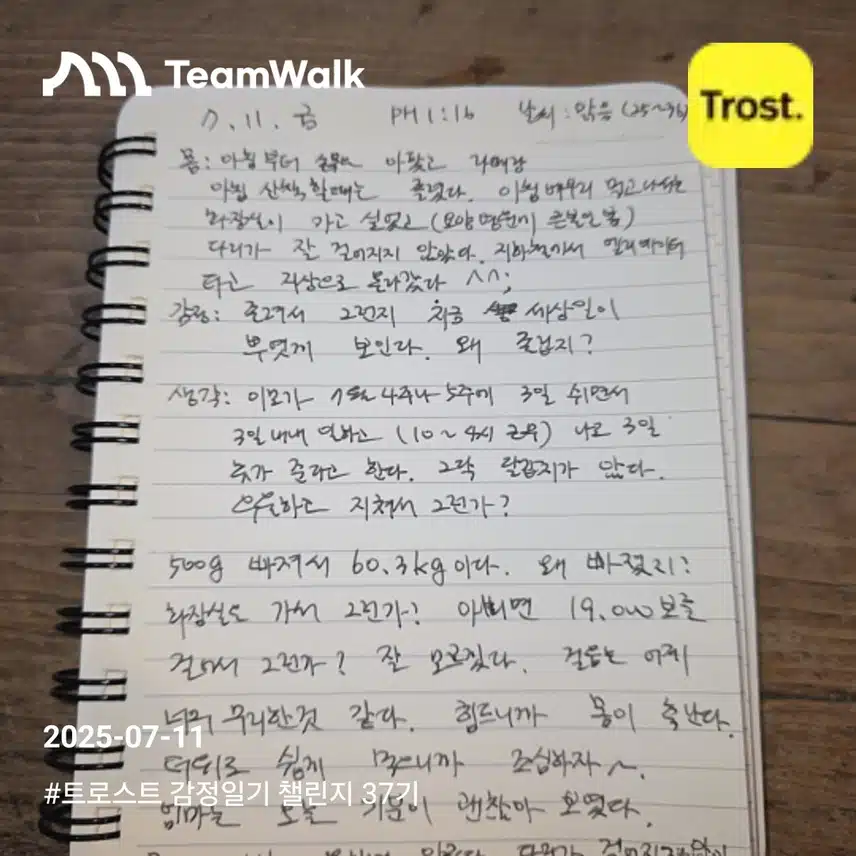 TeamWalk
Trost.
7. 11. 금 PM 1:16 날씨 : 맑음 (25~36)
몸 : 아침부터 아팠고
아침 산책할때는 졸렸다. 이침 먹고나서는
화장실이 가고 싶었고 (요양병원이 큰볼일 봄)
다리가 잘 걸어지지 않았다. 지하철가서 엘리베이터
타고 지상으로 올라갔다 ^^;
감정 : 졸려서 그런지 지금 세상일이
뿌옇게 보인다. 왜 졸립지?
생각 : 이모가 4주나 5주에 3일 쉬면서
3일 내내 일하고 (10~4시 근무) 나도 3일
준다고 한다. 그닥 달갑지가 않다.
우울하고 지쳐서 그런가?
500g 빠져서 60.3kg이다. 왜 빠졌지?
화장실도 가서 그런가? 아니면 19,000보를
걸어서 그런가? 잘 모르겠다. 걸음는 어제
너무 무리한것 같다. 힘드니까 몸이 축난다.
더위로 쉽게 먹으니까 조심하자~.
엄마는 오늘 기분이 괜찮아 보였다.
2025-07-11
#트로스트 감정일기 챌린지 37기